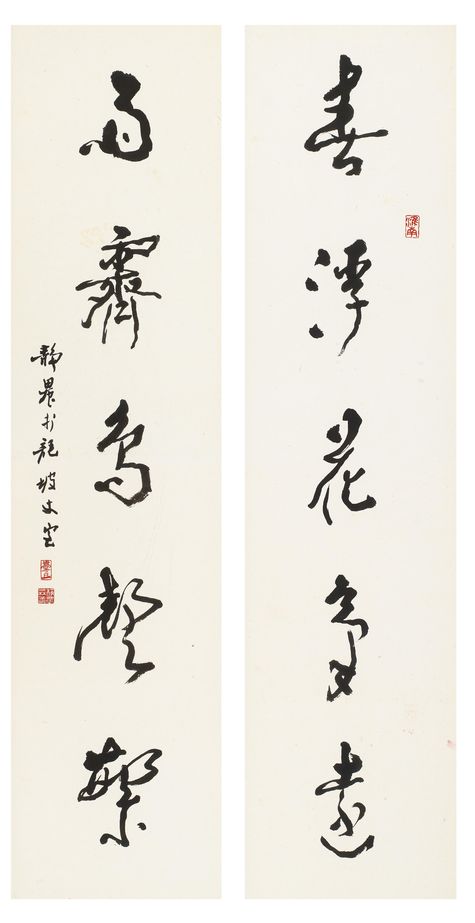 春浮花氣遠
雨霽鳥聲繁
靜農於龍坡丈室